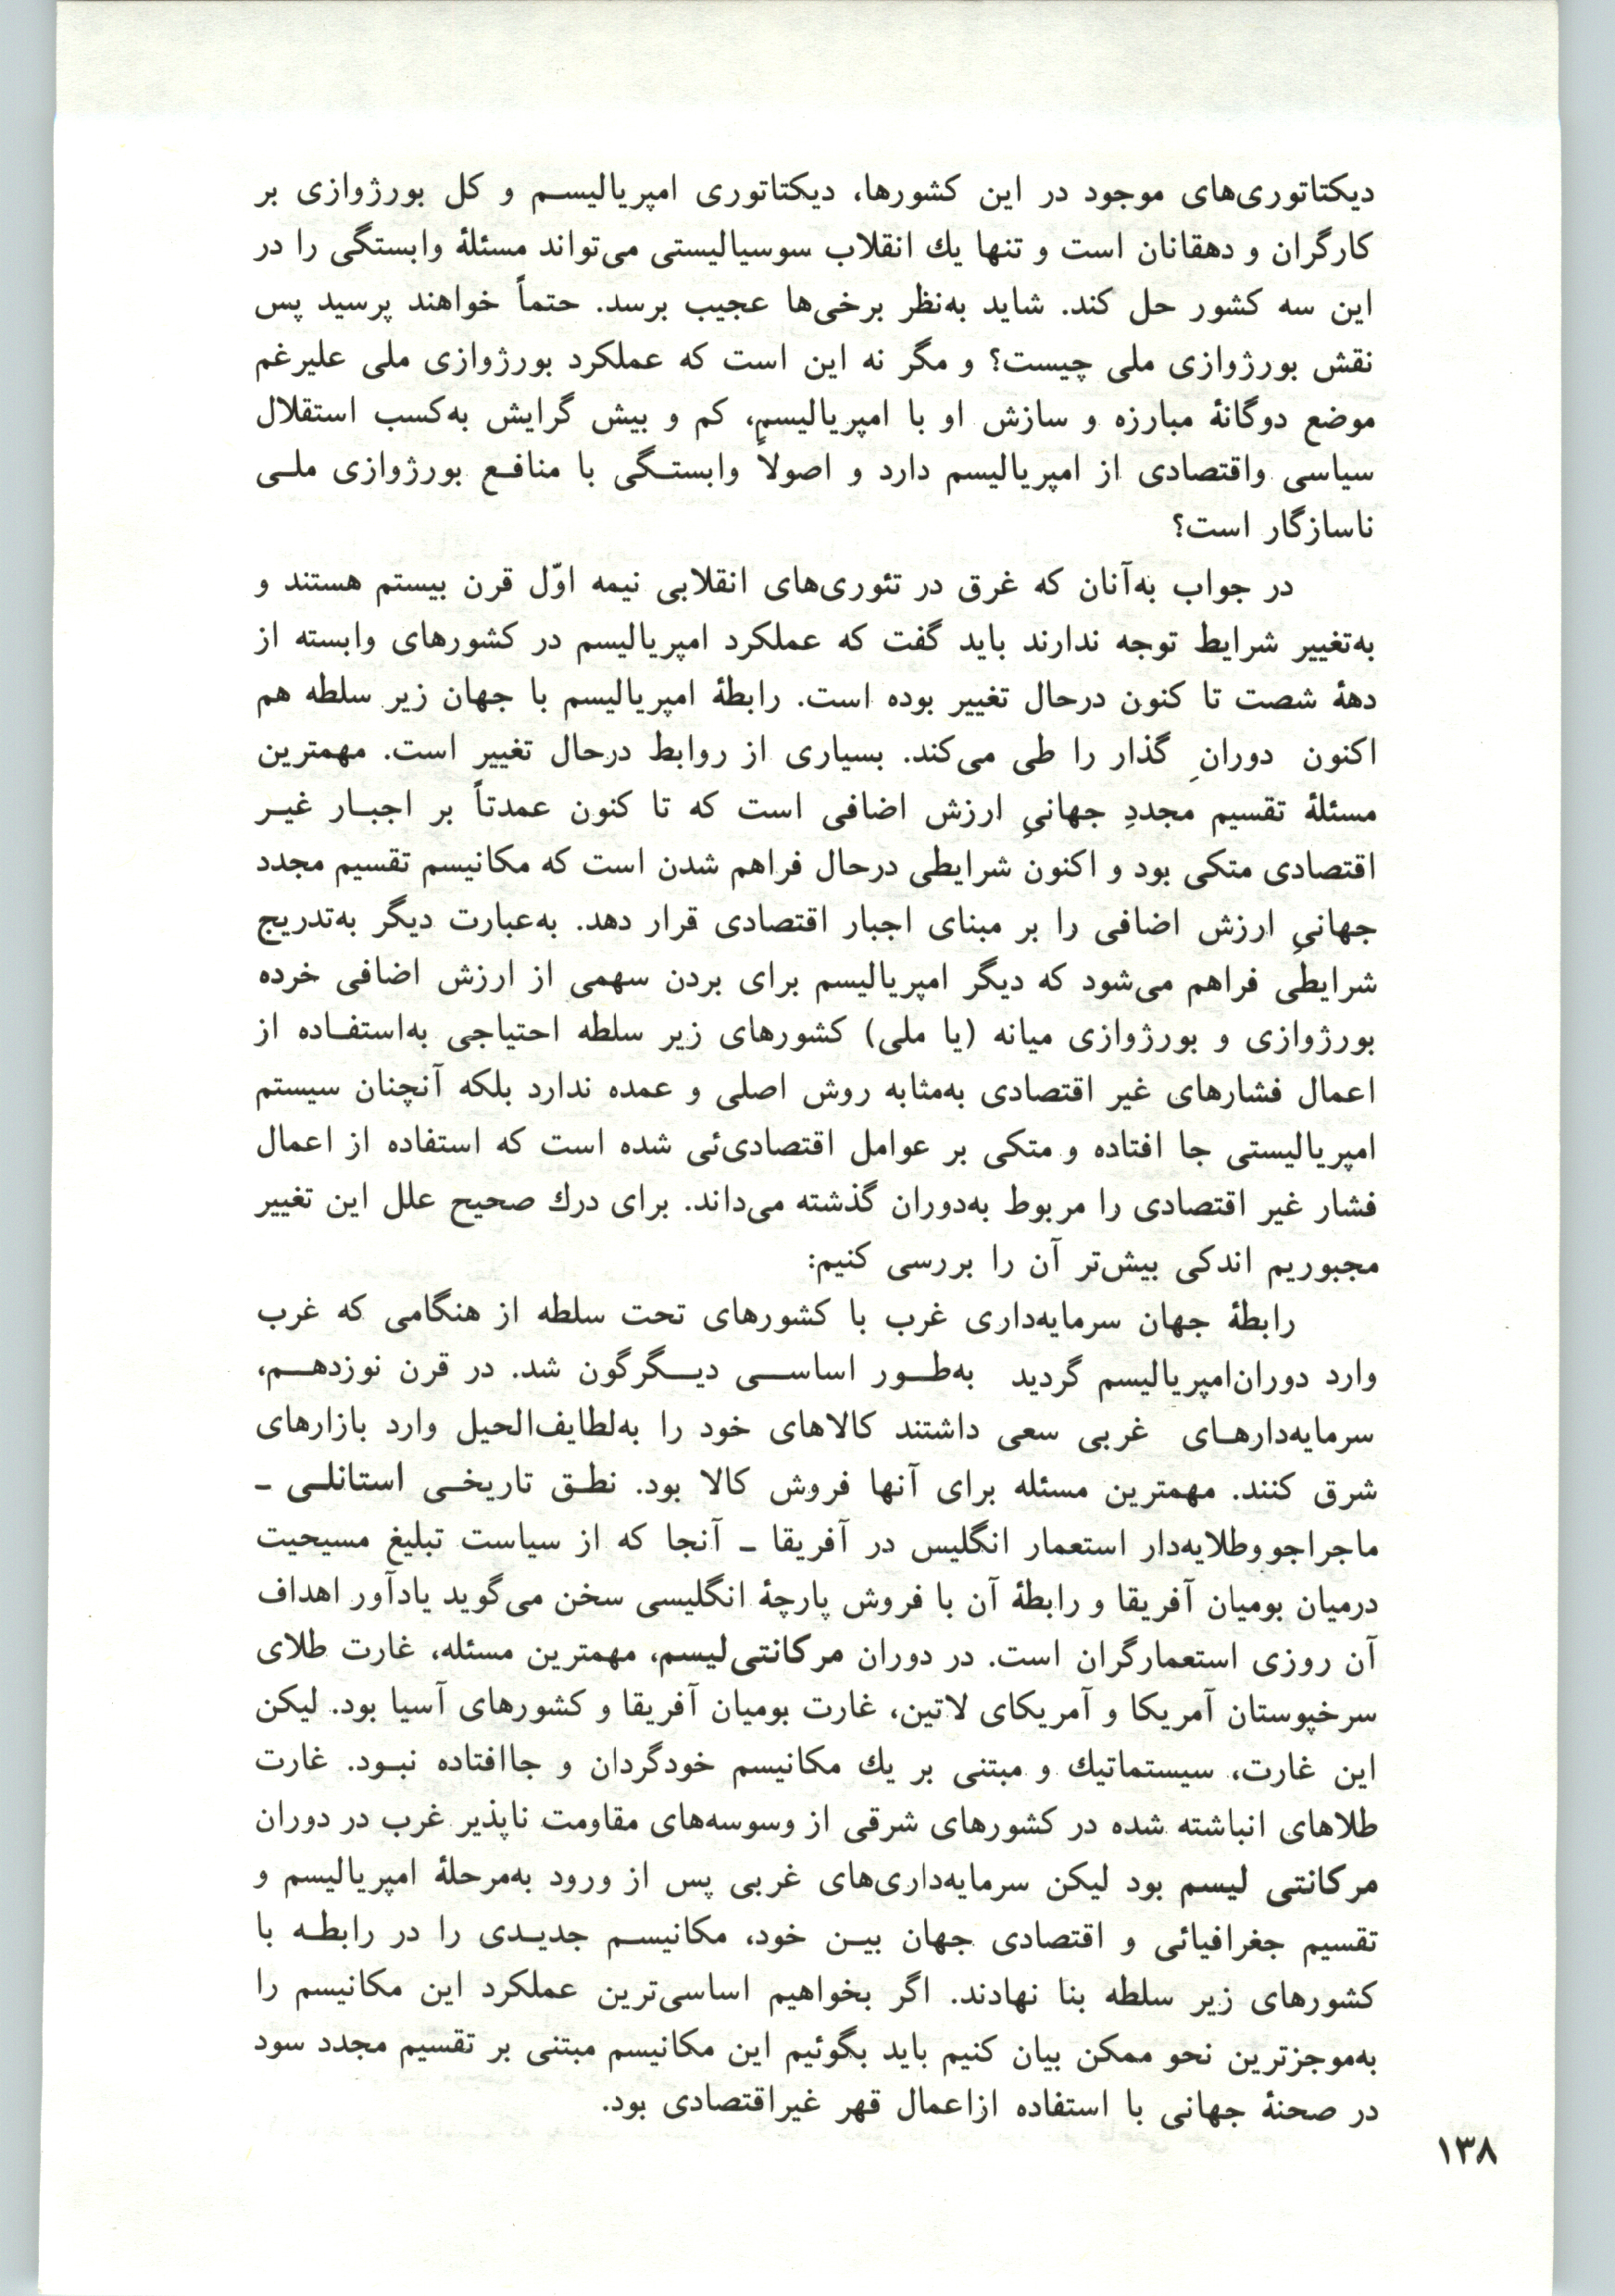 دیکتاتوری‌های موجود در این کشورها، دیکتاتوری امپریالیسم و کل بورژوازی بر
کارگران و دهقانان است و تنها یك انقلاب سوسیالیستی می‌تواند مسئلهٔ وابستگی را در
این سه کشور حل کند. شاید به‌نظر برخی‌ها عجیب برسد. حتماً خواهند پرسید پس
نقش بورژوازی ملی چیست؟ و مگر نه این است که عملکرد بورژوازی ملی علیرغم
موضع دوگانهٔ مبارزه و سازش او با امپریالیسم، کم و بیش گرایش به‌کسب استقلال
سیاسی واقتصادی از امپریالیسم دارد و اصولاً وابستگی با منافع بورژوازی ملی
ناسازگار است؟
در جواب به‌آنان که غرق در تئوری‌های انقلابی نیمه اوّل قرن بیستم هستند و
به‌تغییر شرایط توجه ندارند باید گفت که عملکرد امپریالیسم در کشورهای وابسته از
دههٔ شصت تا کنون درحال تغییر بوده است. رابطهٔ امپریالیسم با جهان زیر سلطه هم
اکنون دورانِ گذار را طی می‌کند. بسیاری از روابط درحال تغییر است. مهمترین
مسئلهٔ تقسیم مجددِ جهانیِ ارزش اضافی است که تا کنون عمدتاً بر اجبار غیر
اقتصادی متکی بود و اکنون شرایطی درحال فراهم شدن است که مکانیسم تقسیم مجدد
جهانیِ ارزش اضافی را بر مبنای اجبار اقتصادی قرار دهد. به‌عبارت دیگر به‌تدریج
شرایطی فراهم می‌شود که دیگر امپریالیسم برای بردن سهمی از ارزش اضافی خرده
بورژوازی و بورژوازی میانه (یا ملی) کشورهای زیر سلطه احتیاجی به‌استفاده از
اعمال فشارهای غیر اقتصادی به‌مثابه روش اصلی و عمده ندارد بلکه آنچنان سیستم
امپریالیستی جا افتاده و متکی بر عوامل اقتصادی‌ئی شده است که استفاده از اعمال
فشار غیر اقتصادی را مربوط به‌دوران گذشته می‌داند. برای درك صحیح علل این تغییر
مجبوریم اندکی بیش‌تر آن را بررسی کنیم:
رابطهٔ جهان سرمایه‌داری غرب با کشورهای تحت سلطه از هنگامی که غرب
وارد دوران‌امپریالیسم گردید به‌طور اساسی دیگرگون شد. در قرن نوزدهم،
سرمایه‌دارهای غربی سعی داشتند کالاهای خود را به‌لطایف‌الحیل وارد بازارهای
شرق کنند. مهمترین مسئله برای آنها فروش کالا بود. نطق تاریخی استانلی ـ
ماجراجو‌وطلایه‌دار استعمار انگلیس در آفریقا ـ آنجا که از سیاست تبلیغ مسیحیت
درمیان بومیان آفریقا و رابطهٔ آن با فروش پارچهٔ انگلیسی سخن می‌گوید یادآور اهداف
آن روزی استعمارگران است. در دوران مرکانتی‌لیسم، مهمترین مسئله، غارت طلای
سرخپوستان آمریکا و آمریکای لاتین، غارت بومیان آفریقا و کشورهای آسیا بود. لیکن
این غارت، سیستماتیك و مبتنی بر یك مکانیسم خودگردان و جاافتاده نبود. غارت
طلاهای انباشته شده در کشورهای شرقی از وسوسه‌های مقاومت ناپذیر غرب در دوران
مرکانتی لیسم بود لیکن سرمایه‌داری‌های غربی پس از ورود به‌مرحلهٔ امپریالیسم و
تقسیم جغرافیائی و اقتصادی جهان بین خود، مکانیسم جدیدی را در رابطه با
کشورهای زیر سلطه بنا نهادند. اگر بخواهیم اساسی‌ترین عملکرد این مکانیسم را
به‌موجزترین نحو ممکن بیان کنیم باید بگوئیم این مکانیسم مبتنی بر تقسیم مجدد سود
در صحنهٔ جهانی با استفاده ازاعمال قهر غیراقتصادی بود.
۱۳۸